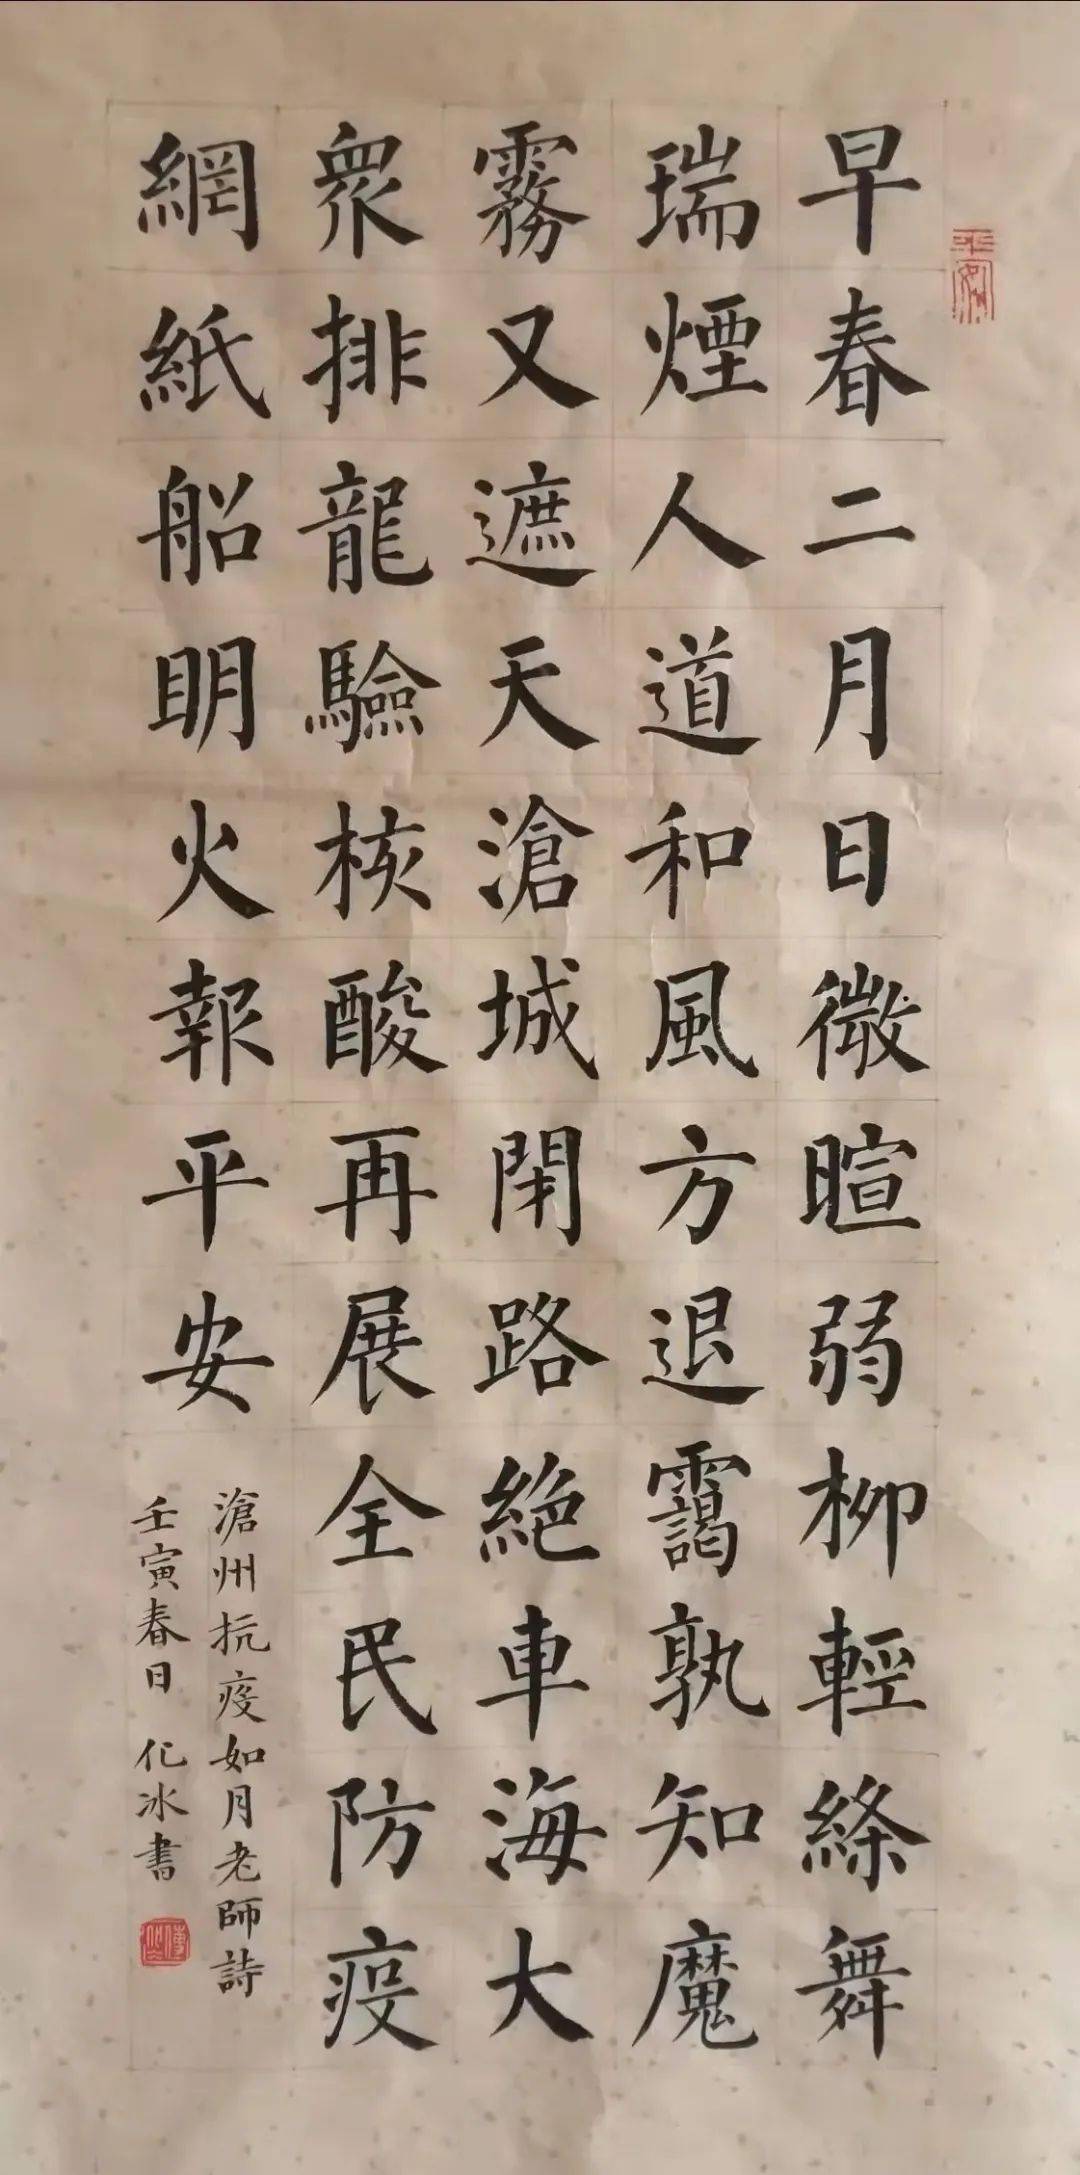 早春二月日微暄弱柳輕絛舞
瑞煙人道和風方退靄孰知魔
霧又遮天滄城閉路絕車海大
衆排龍驗核酸再展全民防疫
網紙船明火報平安
滄州抗疫如月老師詩
壬寅春日 化冰書